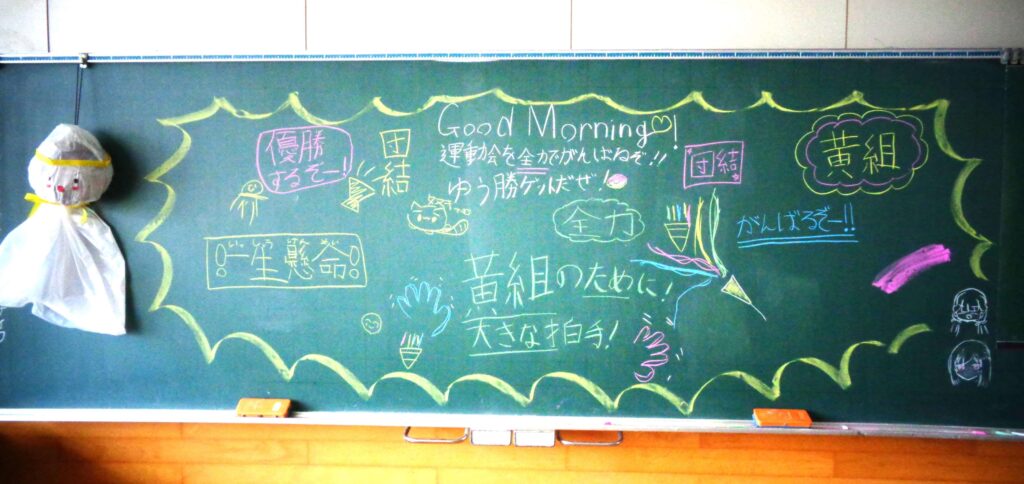 Good Morning♡!
運動会を全力でがんばるぞ!!
ゆう勝ゲットだぜ!
優勝
するぞー!
団結
団結
黄組
全力
がんばるぞー!!
一生懸命
黄組のために!
大きな拍手!